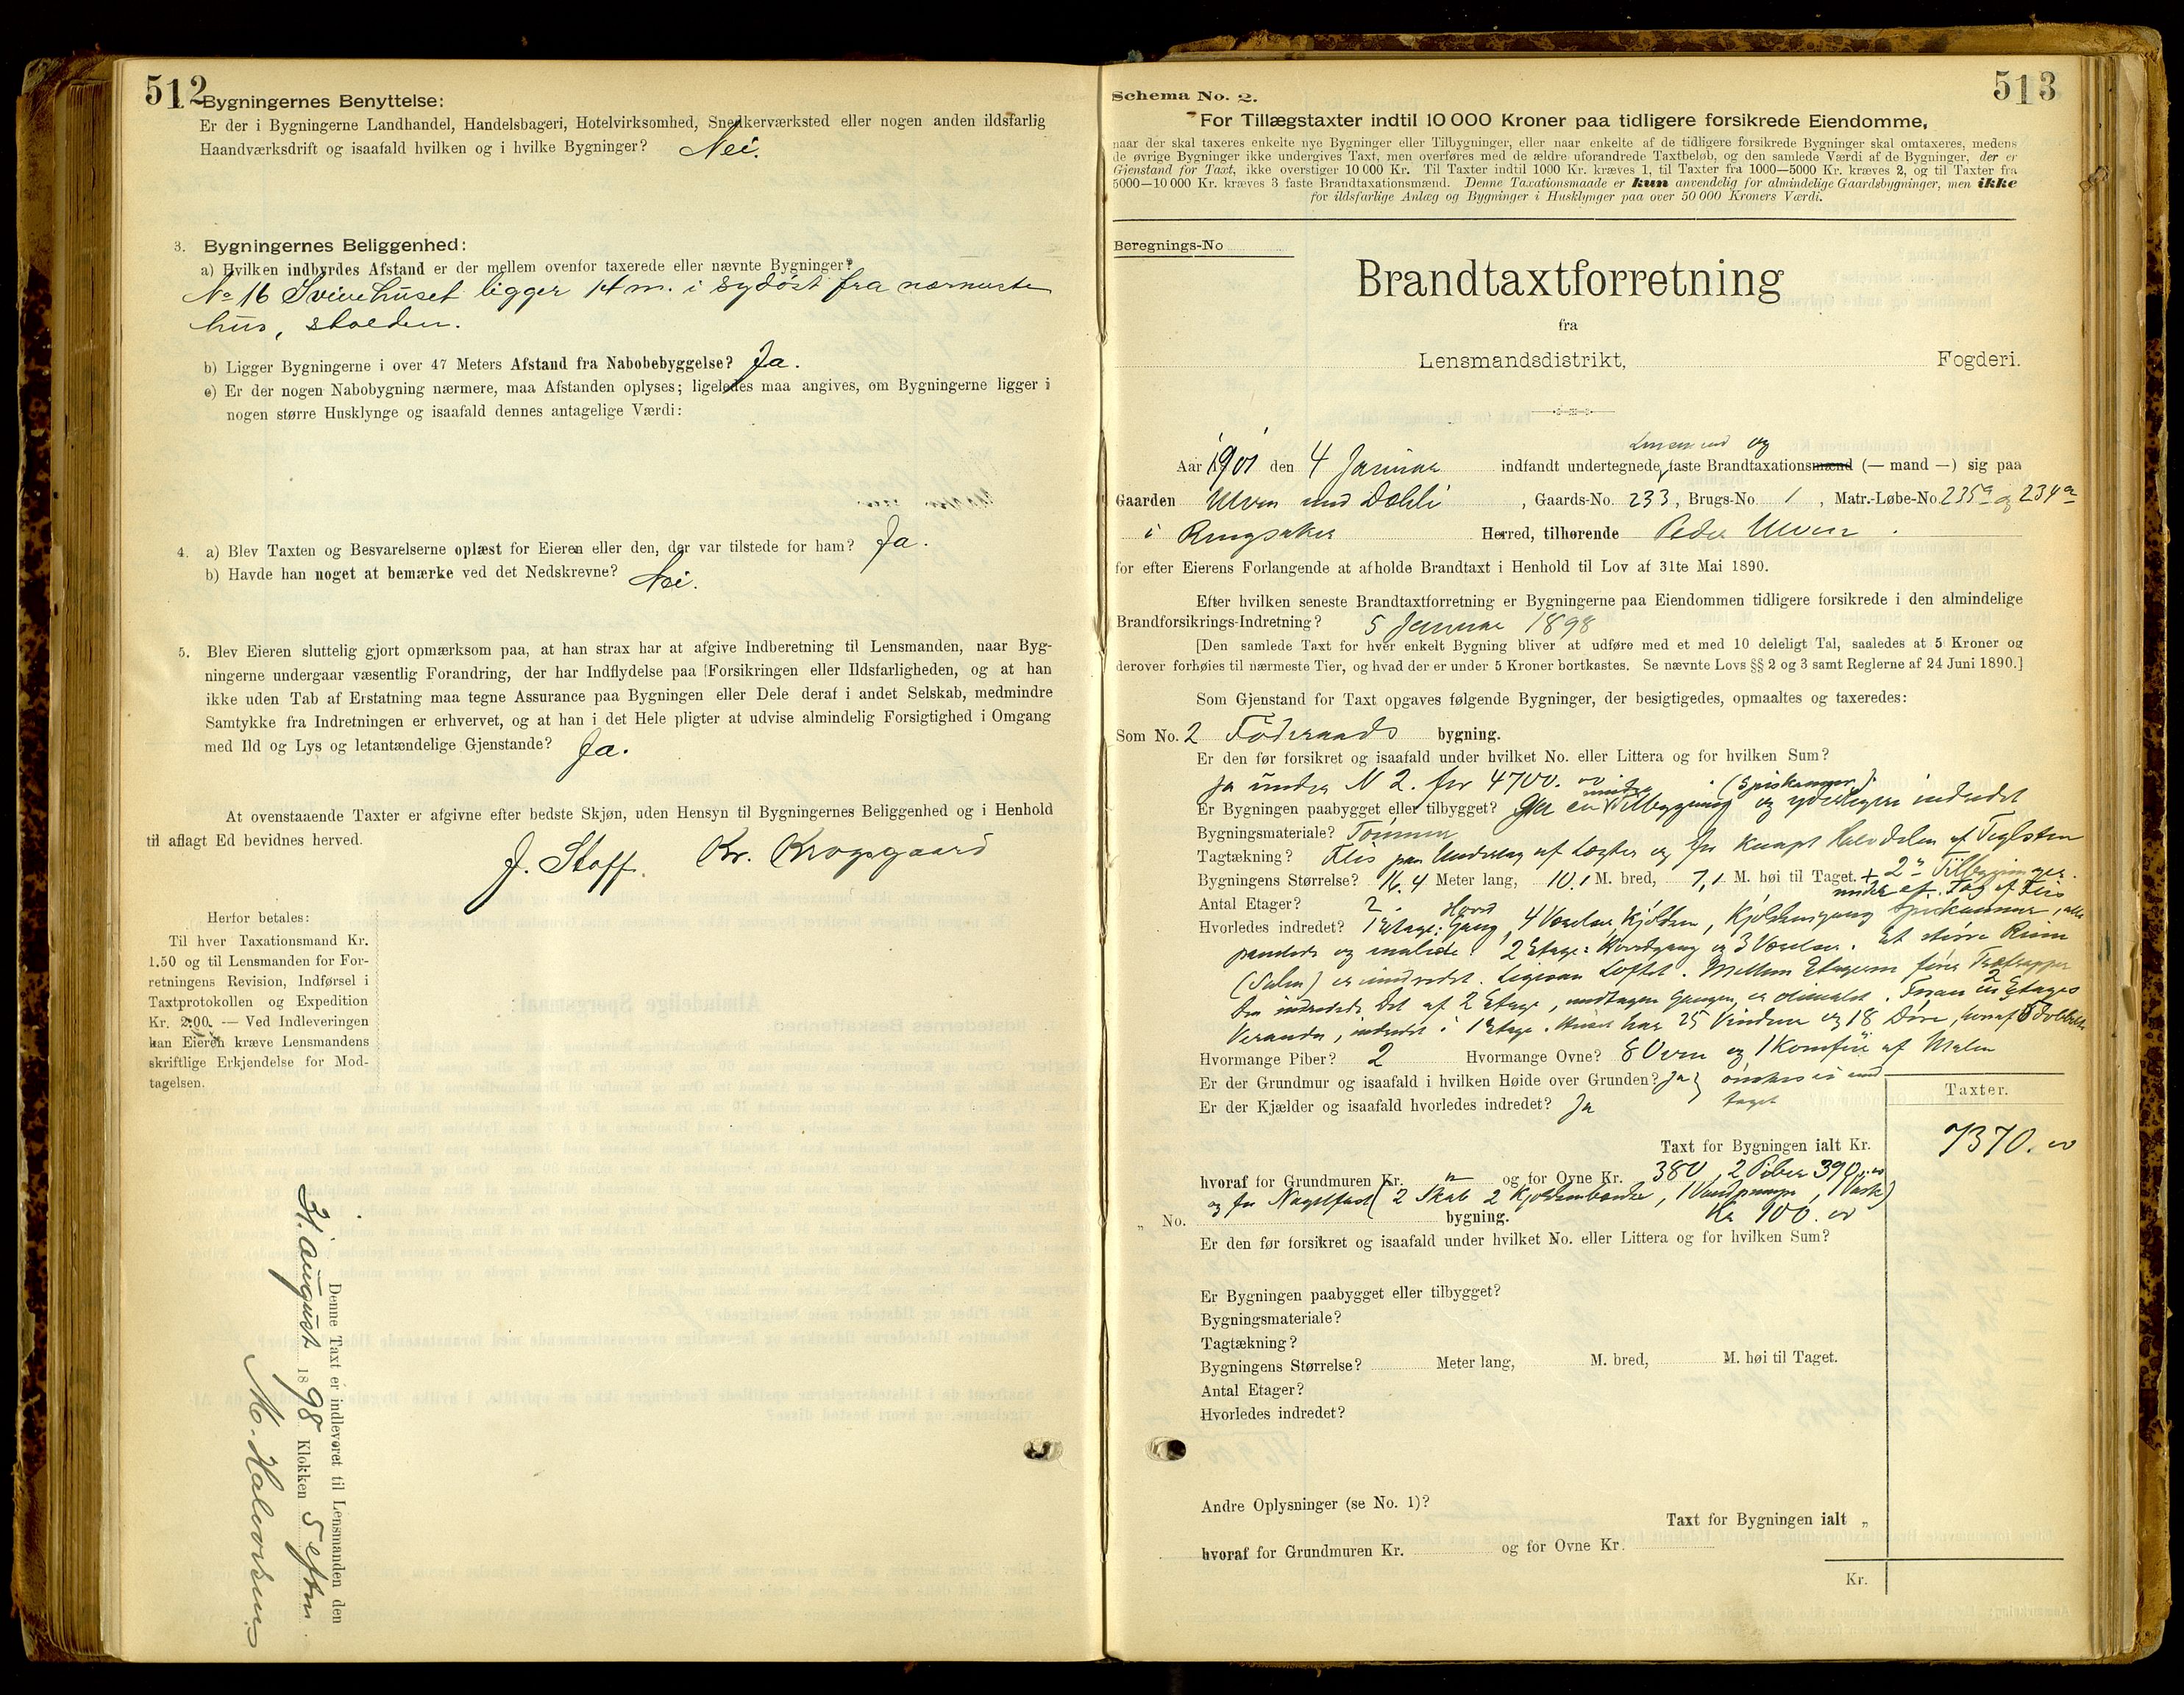 512
Bygningernes Benyttelse:
Er der i Bygningerne Landhandel, Handelsbageri, Hotelvirksomhed, Snedkerværksted eller nogen anden ildsfarlig
Haandværksdrift og isaafald hvilken og i hvilke Bygninger? Nei.
3. Bygningernes Beliggenhed:
a) Hvilken indbyrdes Afstand er der mellem ovenfor taxerede eller nævnte Bygninger?
No 16 Svinehuset ligger 14 m. i sydöst fra nærmeste
hus, stalden.
b) Ligger Bygningerne i over 47 Meters Afstand fra Nabobebyggelse? Ja.
c) Er der nogen Nabobygning nærmere, maa Afstanden oplyses; ligeledes maa angives, om Bygningerne ligger i
nogen større Husklynge og isaafald dennes antagelige Værdi:
4. a) Blev Taxten og Besvarelserne oplæst for Eieren eller den, der var tilstede for ham? Ja.
b) Havde han noget at bemærke ved det Nedskrevne? Nei.
5. Blev Eieren sluttelig gjort opmærksom paa, at han strax har at afgive Indberetning til Lensmanden, naar Byg-
ningerne undergaar væsentlig Forandring, der har Indflydelse paa Forsikringen eller Ildsfarligheden, og at han
ikke uden Tab af Erstatning maa tegne Assurance paa Bygningen eller Dele deraf i andet Selskab, medmindre
Samtykke fra Indretningen er erhvervet, og at han i det Hele pligter at udvise almindelig Forsigtighed i Omgang
med Ild og Lys og letantændelige Gjenstande? Ja.
At ovenstaaende Taxter er afgivne efter bedste Skjøn, uden Hensyn til Bygningernes Beliggenhed og i Henhold
til aflagt Ed bevidnes herved.
J. Stoff. Kr. Krogsgaard
Herfor betales:
Til hver Taxationsmand Kr.
1.50 og til Lensmanden for For-
retningens Revision, Indførsel i
Taxtprotokollen og Expedition
Kr. 2.00. — Ved Indleveringen
kan Eieren kræve Lensmandens
skriftlige Erkjendelse for Mod-
tagelsen.
Denne Taxt er indleveret til Lensmanden den
31. august 1898 Klokken 5 eftm.
M. Halvorsen
513
Schema No. 2.
For Tillægstaxter indtil 10 000 Kroner paa tidligere forsikrede Eiendomme,
naar der skal taxeres enkelte nye Bygninger eller Tilbygninger, eller naar enkelte af de tidligere forsikrede Bygninger skal omtaxeres, medens
de øvrige Bygninger ikke undergives Taxt, men overføres med de ældre uforandrede Taxtbeløb, og den samlede Værdi af de Bygninger, der er
Gjenstand for Taxt, ikke overstiger 10 000 Kr. Til Taxter indtil 1000 Kr. kræves 1, til Taxter fra 1000—5000 Kr. kræves 2, og til Taxter fra
5000—10 000 Kr. kræves 3 faste Brandtaxationsmænd. Denne Taxationsmaade er kun anvendelig for almindelige Gaardsbygninger, men ikke
for ildsfarlige Anlæg og Bygninger i Husklynger paa over 50 000 Kroners Værdi.
Beregnings-No
Brandtaxtforretning
fra
Lensmandsdistrikt, Fogderi.
Lensmand og
Aar 1901 den 4 Januar indfandt undertegnede faste Brandtaxationsmænd (— mand —) sig paa
Gaarden Ulven med Dæhli, Gaards-No. 233, Brugs-No. 1, Matr.-Løbe-No. 235a og 234a
i Ringsaker Herred, tilhørende Peder Ulven.
for efter Eierens Forlangende at afholde Brandtaxt i Henhold til Lov af 31te Mai 1890.
Efter hvilken seneste Brandtaxtforretning er Bygningerne paa Eiendommen tidligere forsikrede i den almindelige
Brandforsikrings-Indretning? 5 Januar 1898
[Den samlede Taxt for hver enkelt Bygning bliver at udføre med et med 10 deleligt Tal, saaledes at 5 Kroner og
derover forhøies til nærmeste Tier, og hvad der er under 5 Kroner bortkastes. Se nævnte Lovs §§ 2 og 3 samt Reglerne af 24 Juni 1890.]
Som Gjenstand for Taxt opgaves følgende Bygninger, der besigtigedes, opmaaltes og taxeredes:
Som No. 2 Föderaads bygning.
Er den før forsikret og isaafald under hvilket No. eller Littera og for hvilken Sum?
Ja under N 2. for 4700.00
mindre (Spiskammer).
Er Bygningen paabygget eller tilbygget? en Tilbygning og yderligere indredet
Bygningsmateriale? Tømmer
Tagtækning? Flis paa Underlag af Lægter og for knapt Halvdelen af Teglsten
Bygningens Størrelse? 16.4 Meter lang, 10.1 M. bred, 7,1 M. høi til Taget. + 2de Tilbygninger.
Antal Etager? 2. under et. Tag af Flis
Hvorledes indredet? 1 Etage: Gang, 4 Værelser, Kjökken, Kjökkengang, Spiskammer, alle
panelede og malede. 2 Etage: Bordgang og 3 Værelser. Et större Rum
(Salen) er uindredet. Ligesaa Loftet. Mellem Etagerne fører Trætrapper
Den indredede Del af 2 Etage, undtagen Gangen, er oliemalet. Foran en 2 Etages
Veranda, indredet i 1 Etage. Huset har 25 Vinduer og 18 Døre, heraf 5 dobbelte
Hvormange Piber? 2 Hvormange Ovne? 8 Ovne og 1 Komfur af Malm
Er der Grundmur og isaafald i hvilken Høide over Grunden? Ja } ønskes ei med
Er der Kjælder og isaafald hvorledes indredet? Ja taget
Taxter.
Taxt for Bygningen ialt Kr. 7370.00
hvoraf for Grundmuren Kr. " og for Ovne Kr. 380, 2 Piber 390.00
og for Nagelfast (2 Skab 2 Kjökkenbænke, 1 Vandpumpe, 1 Vask)
" No. bygning. Kr 100.00
Er den før forsikret og isaafald under hvilket No. eller Littera og for hvilken Sum?
Er Bygningen paabygget eller tilbygget?
Bygningsmateriale?
Tagtækning?
Bygningens Størrelse? Meter lang, M. bred, M. høi til Taget.
Antal Etager?
Hvorledes indredet?
Andre Oplysninger (se No. 1)?
Taxt for Bygningen ialt "
hvoraf for Grundmuren Kr. og for Ovne Kr.
Kr.